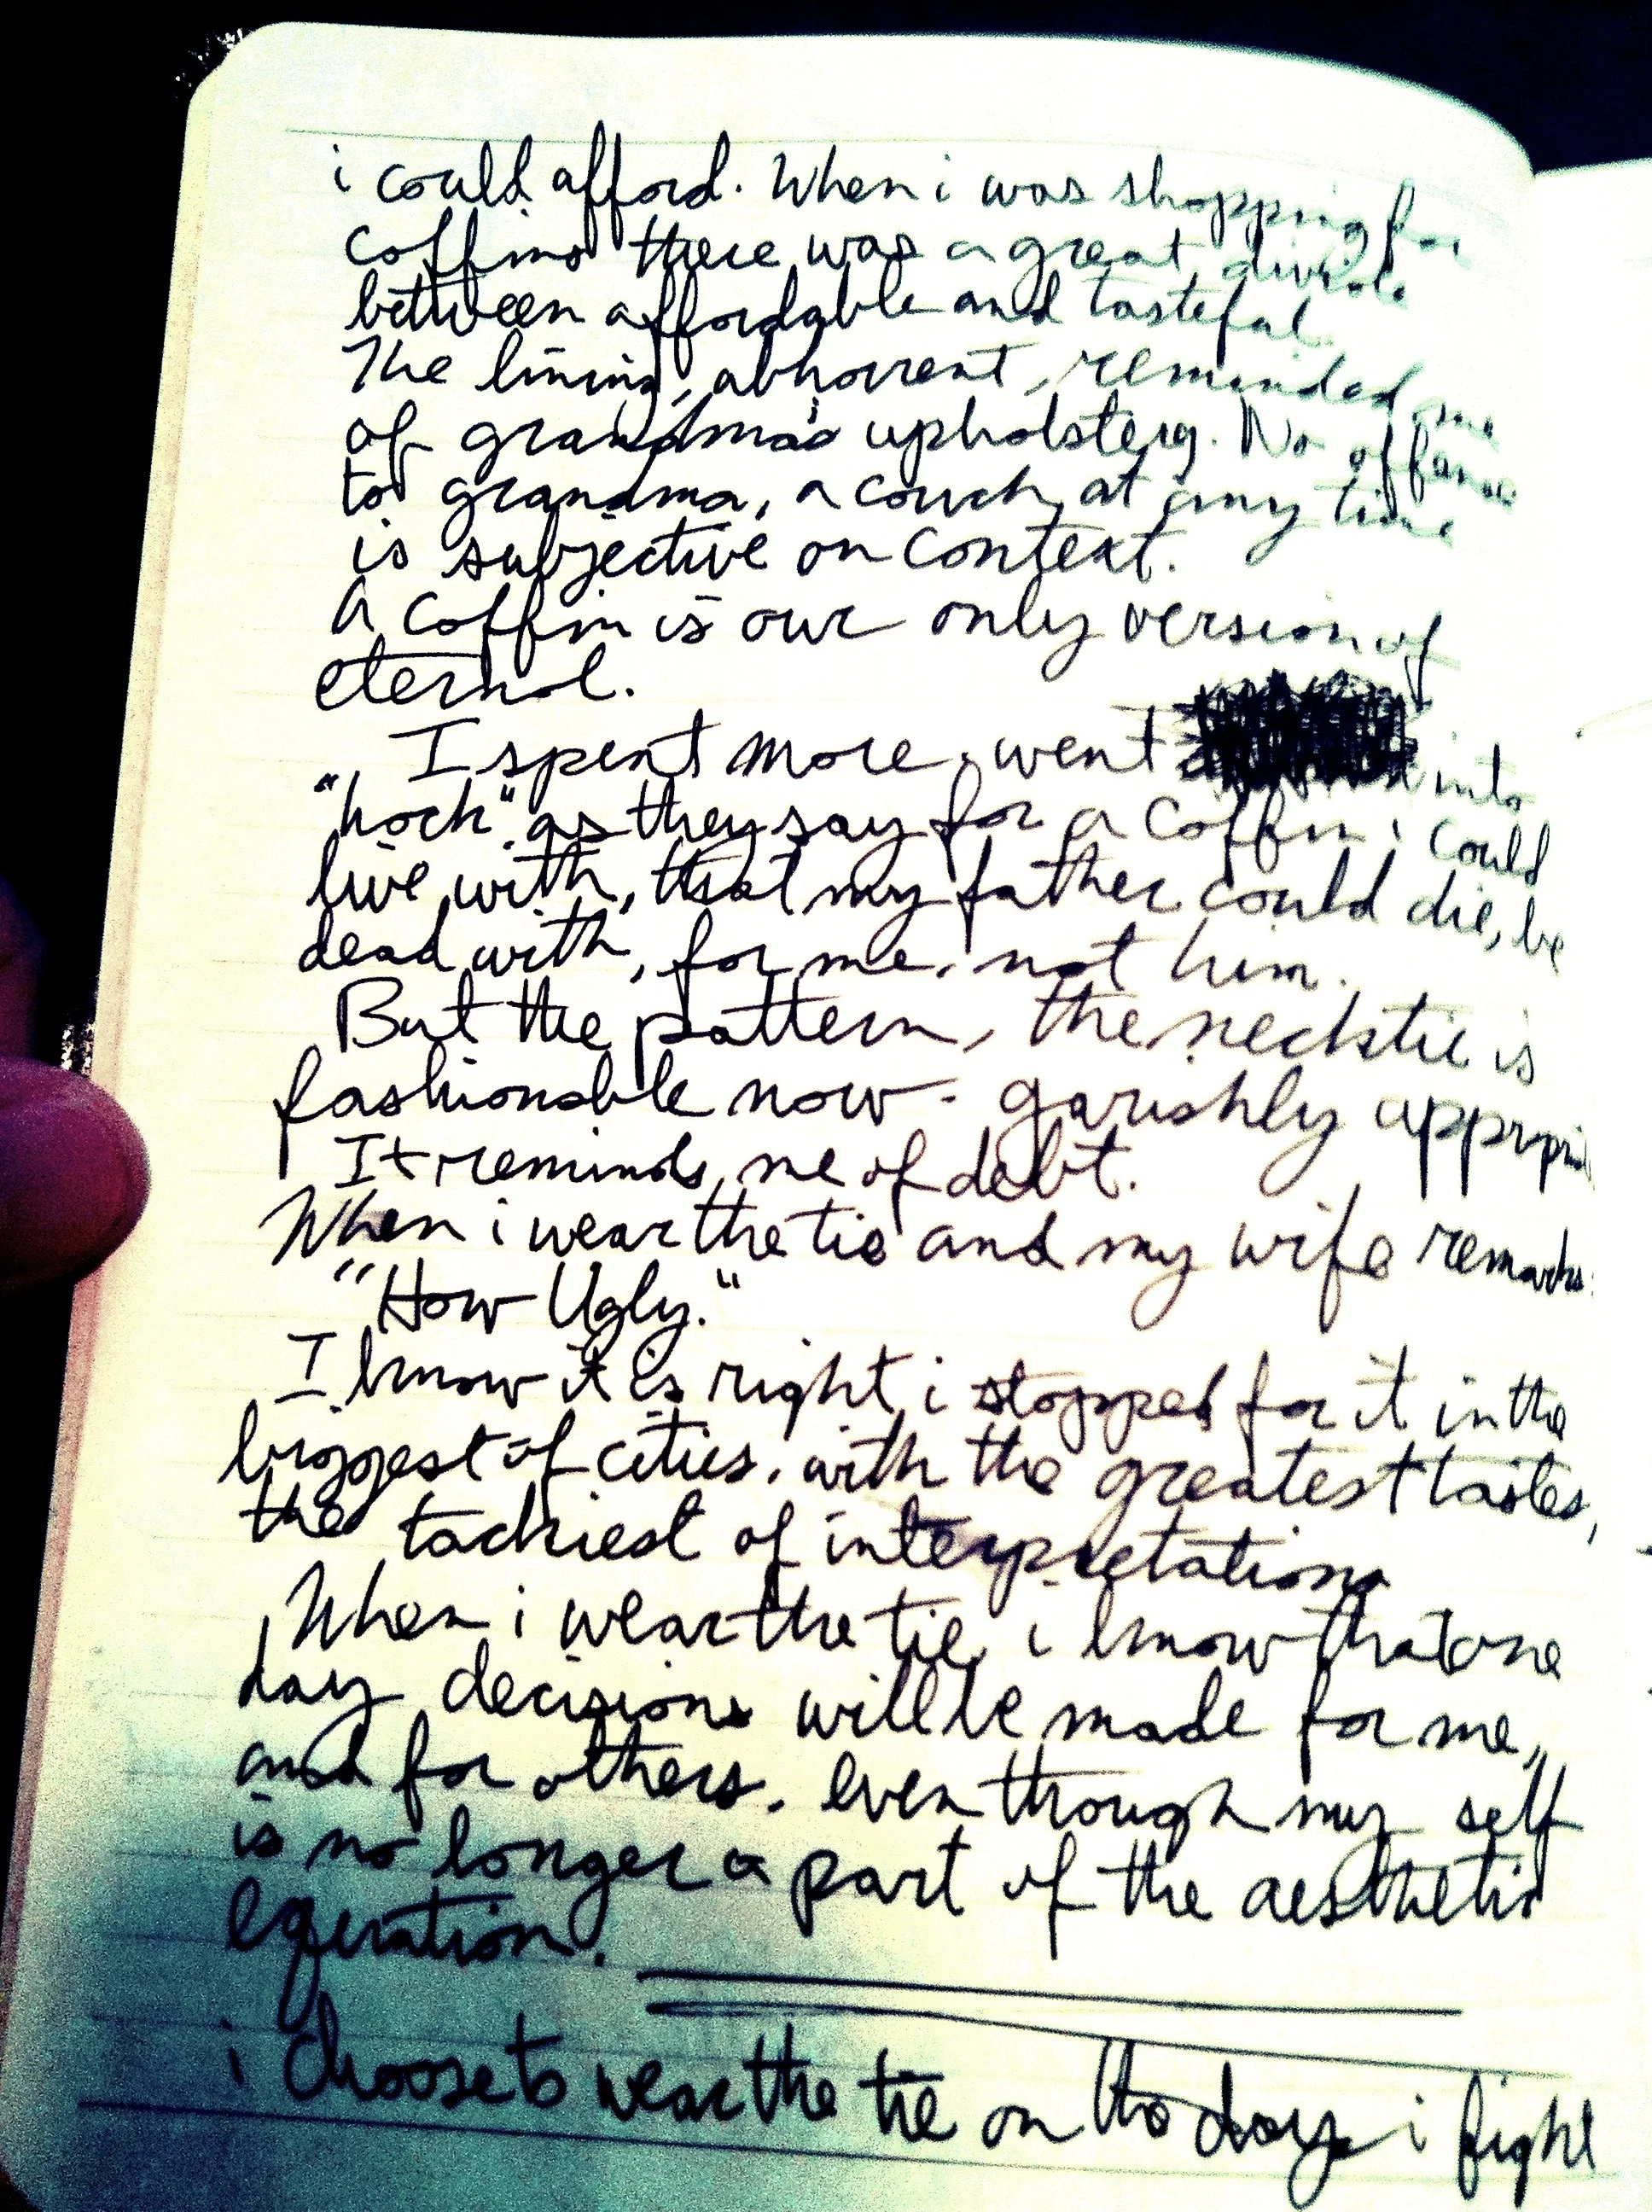 i could afford. When i was shopping for
coffins there was a great divide
between affordable and tasteful.
The lining, abhorrent, reminded me
of grandma's upholsterg. No offense
to grandma, a couch, at any time
is subjective on context.
A coffin is our only version of
eternal.
I spent more, went into
"hock" as they say for a coffin i could
live with, that my father could die, be
dead with, for me, not him.
But the pattern, the necktie is
fashionable now - garishly
It reminds me of debt.
When i wear the tie and my wife remarks:
"How Ugly."
I know it is right, i stopped for it in the
biggest of cities, with the greatest tastes,
the tackiest of interpretations
When i wear the tie, i know that one
day decisions will be made for me,
and for others, even though my self
is no longer a part of the aesthetic
equation.
i choose to wear the tie on the days i fight